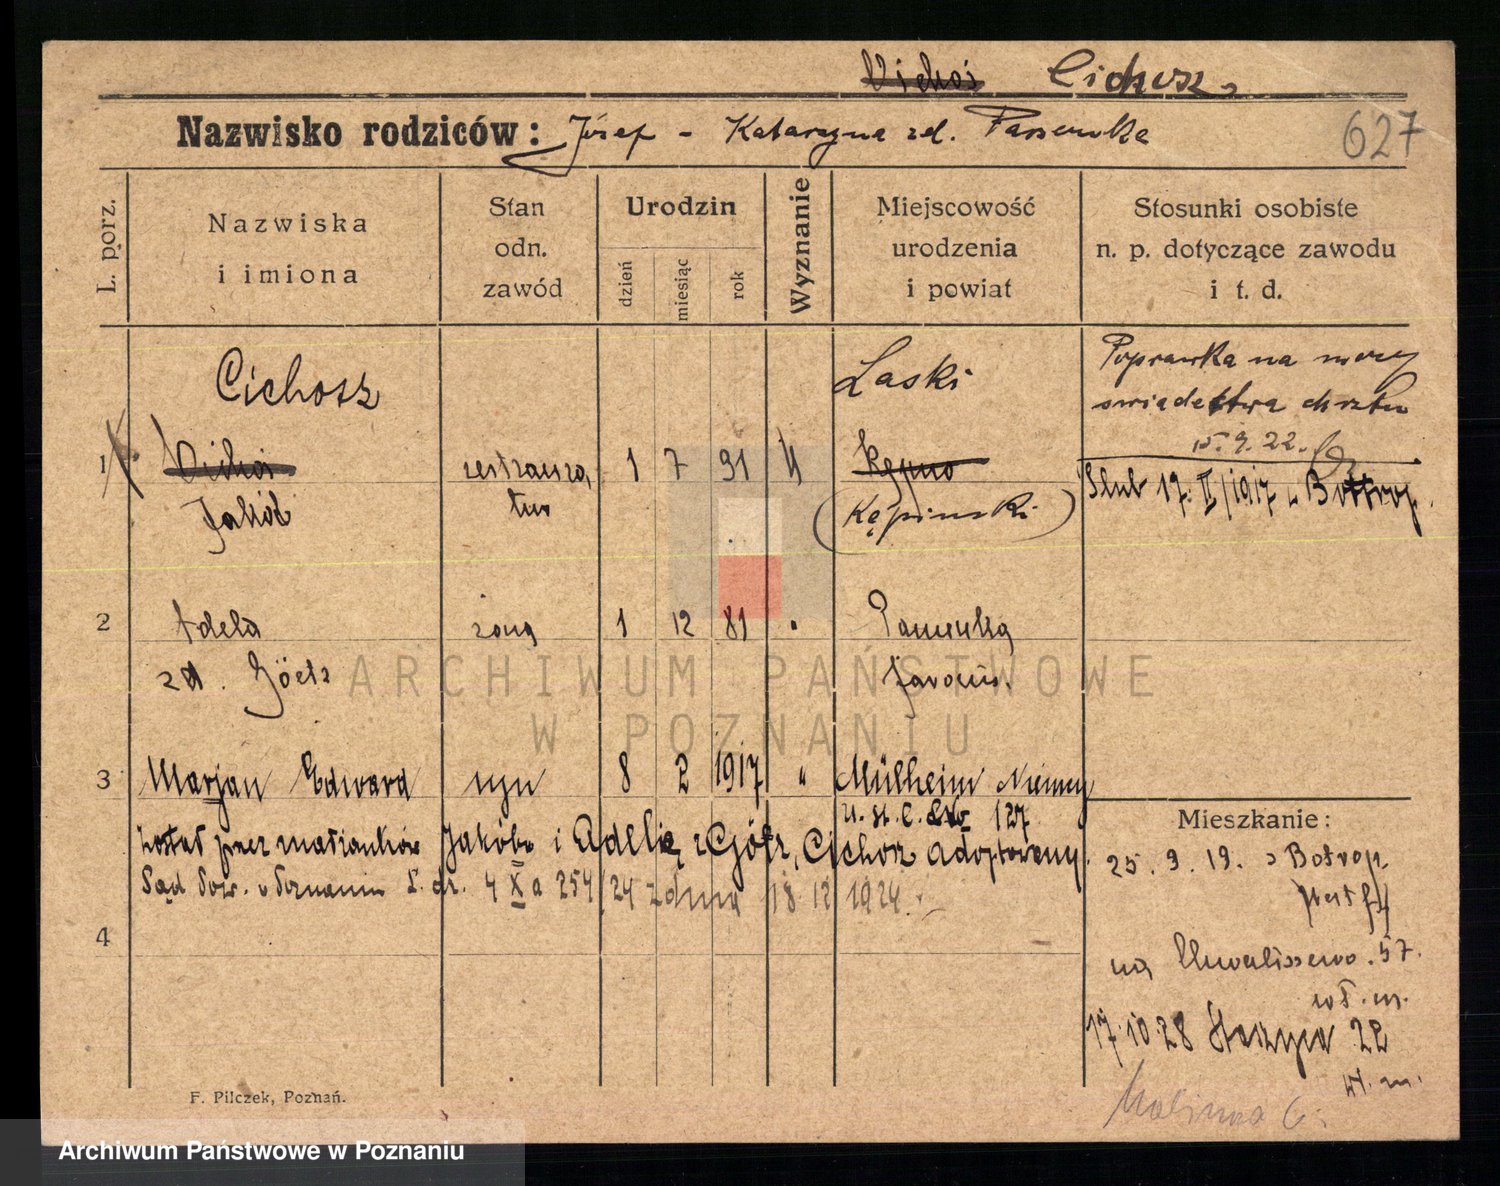 Cichosz
Nazwisko rodziców: Józef - Katarzyna zd.
627
L. porz.
Nazwiska
i imiona
Stan
odn.
zawód
Urodzin
dzień
miesiąc
rok
Wyznanie
Miejscowość
urodzenia
i powiat
Stosunki osobiste
n. p. dotyczące zawodu
i t. d.
Cichosz
Laski
Poprawka na mocy
świadectwa chrztu
15.9.22.
1
1 7 91
Kępno
Jakób
(Kępiński)
Ślub 17. II/1917 w Bottrop.
2 Adela żona 1 12 81
zd. Götz
Jarocin.
3 Marjan Edward syn 8 2 1917 " Mülheim Niemcy
U. st. C. No 127
został przez małżonków Jakóba i Adelię z Götz, Cichosz adoptowany.
Sąd Pow. w Poznaniu L. dz. 4 X a 254/24 z dnia 18 12 1924.
4
Mieszkanie:
25. 9. 19. z Botrop
na Chwaliszewo. 57.
wł. m.
17.10.28 Staszyca 22
wł. m.
Malinowa 6.
F. Pilczek, Poznań.
ARCHIWUM PAŃSTWOWE
W POZNANIU
Archiwum Państwowe w Poznaniu